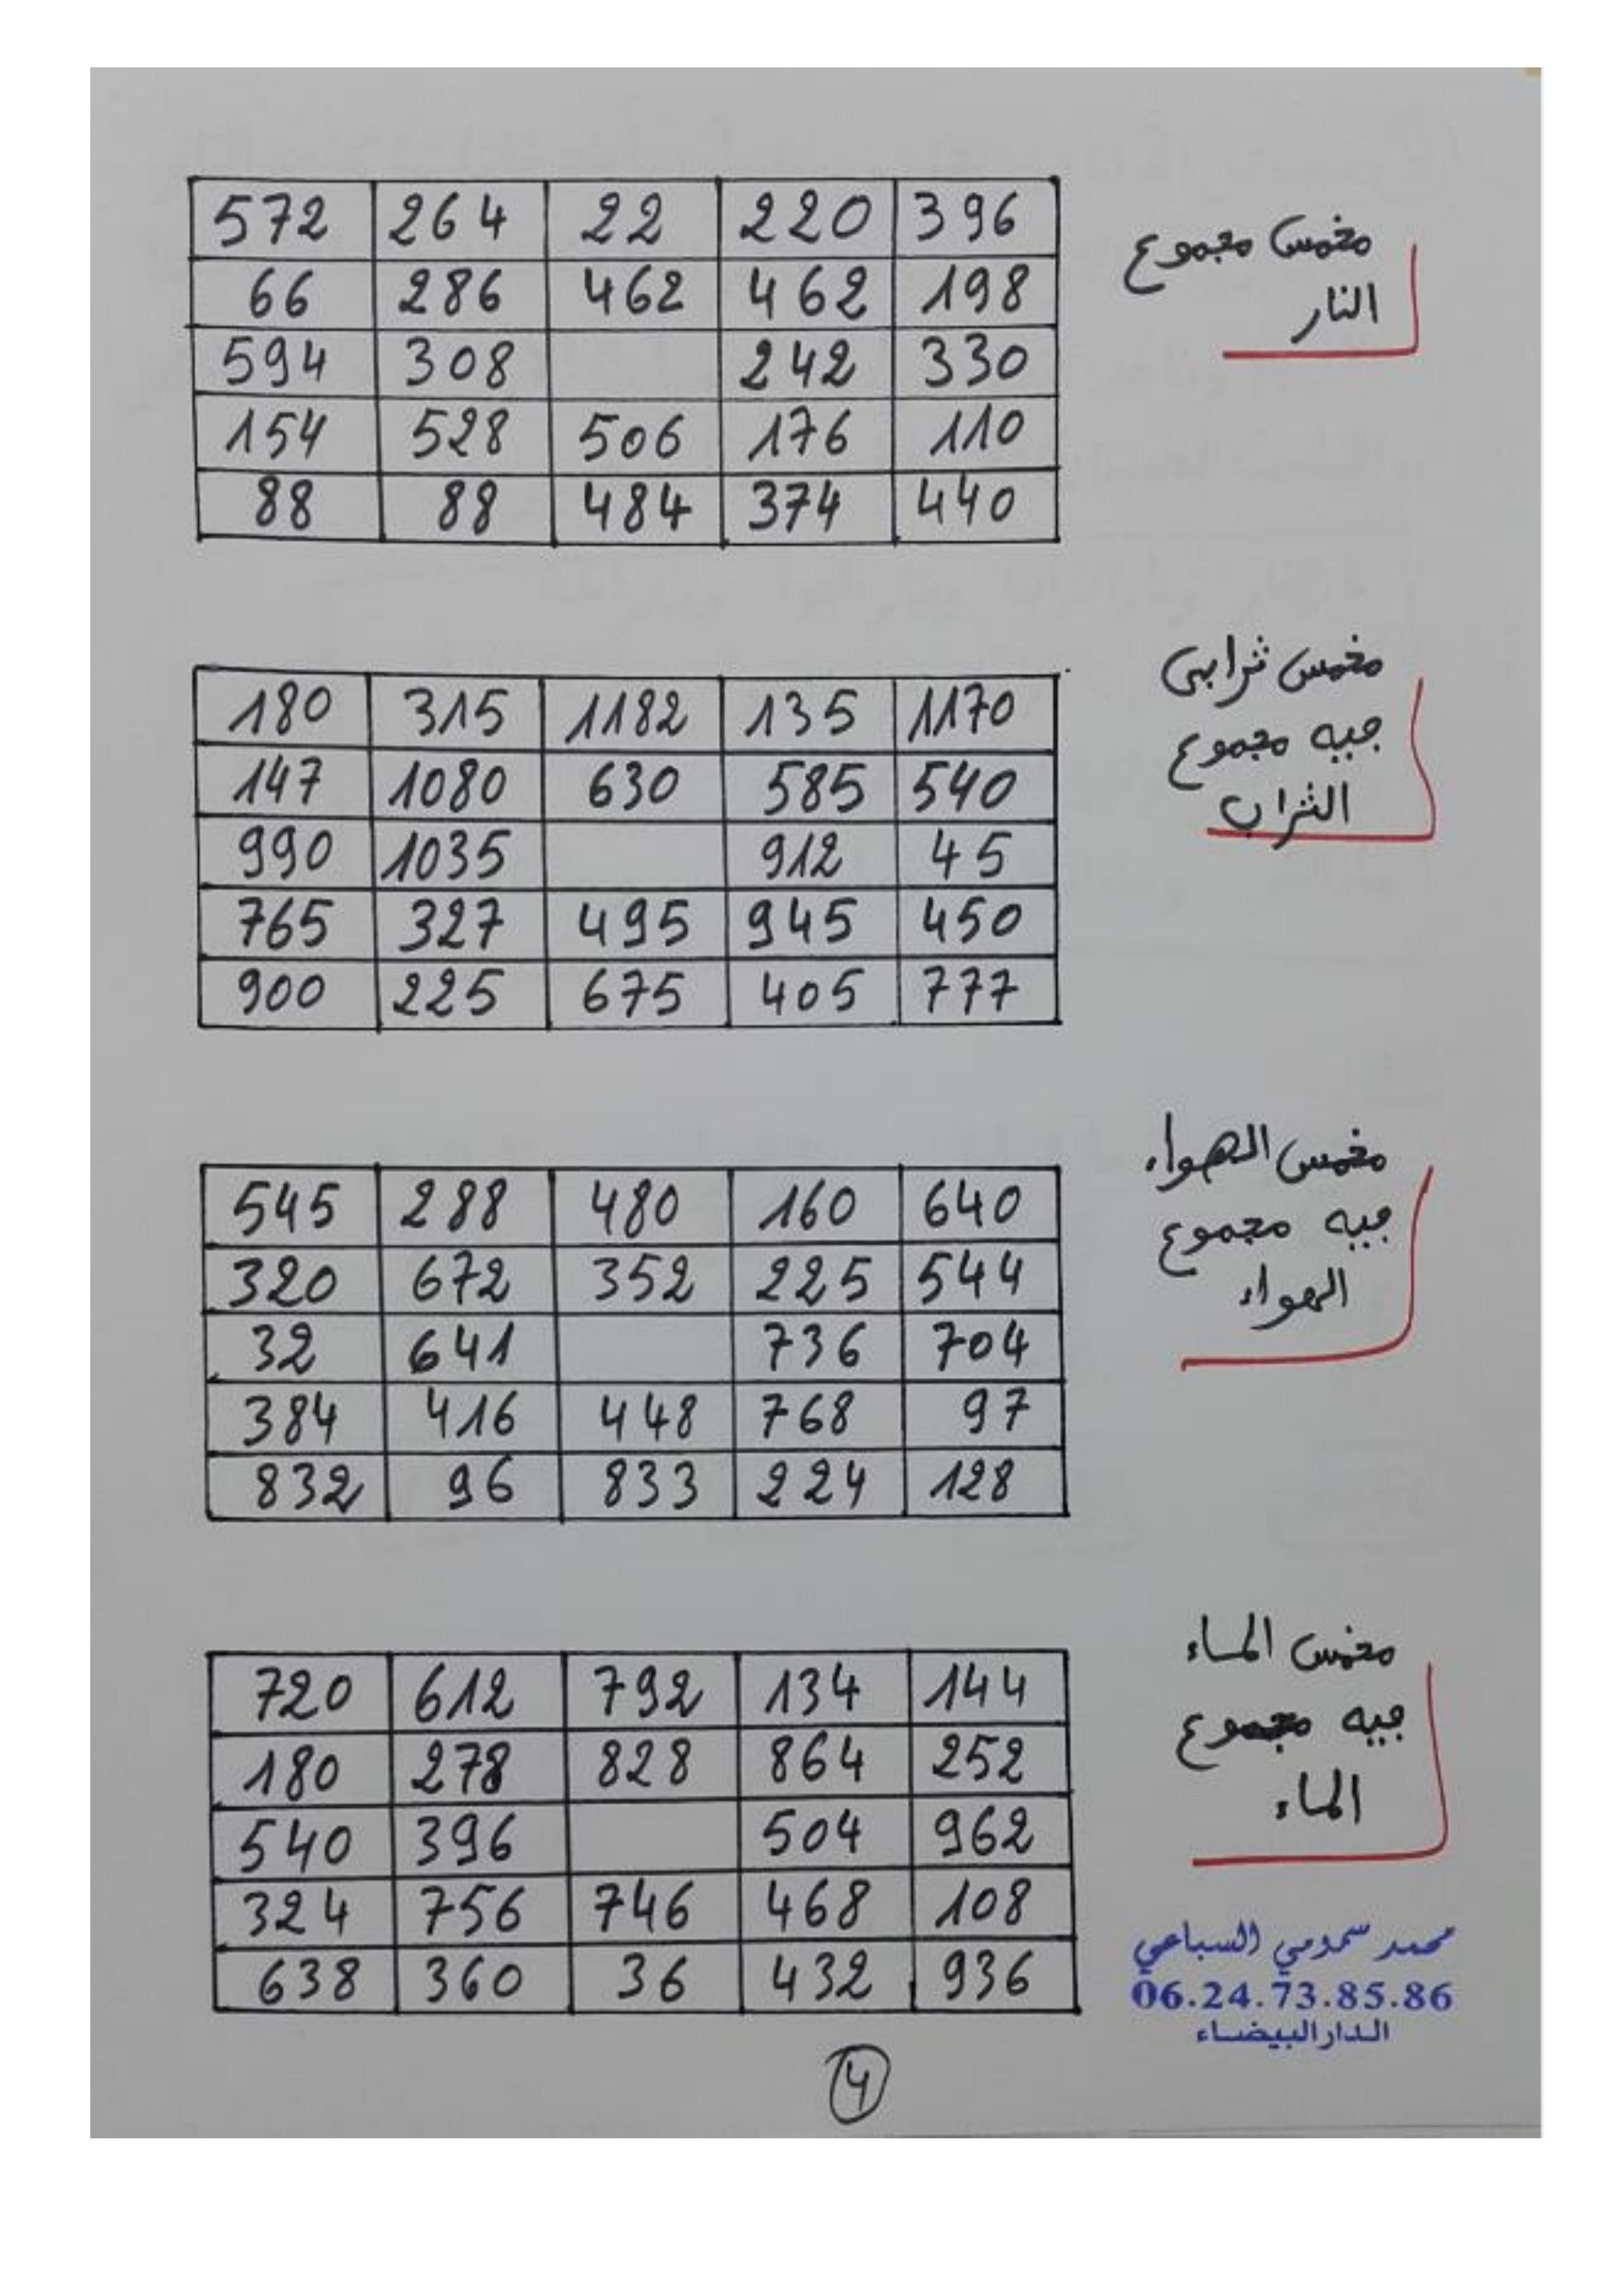 572 264 22 220 396
66 286 462 462 198
594 308 242 330
154 528 506 176 110
88 88 484 374 440
مخمس مجموع
النار
180 315 1182 135 1170
147 1080 630 585 540
990 1035 912 45
765 327 495 945 450
900 225 675 405 777
مخمس ترابي
فيه مجموع
التراب
545 288 480 160 640
320 672 352 225 544
32 641 736 704
384 416 448 768 97
832 96 833 224 128
مخمس الهواء
فيه مجموع
الهواء
720 612 792 134 144
180 278 828 864 252
540 396 504 962
324 756 746 468 108
638 360 36 432 936
مخمس الماء
فيه مجموع
الماء
محمد سمومي السباعي
06.24.73.85.86
الدار البيضاء
4